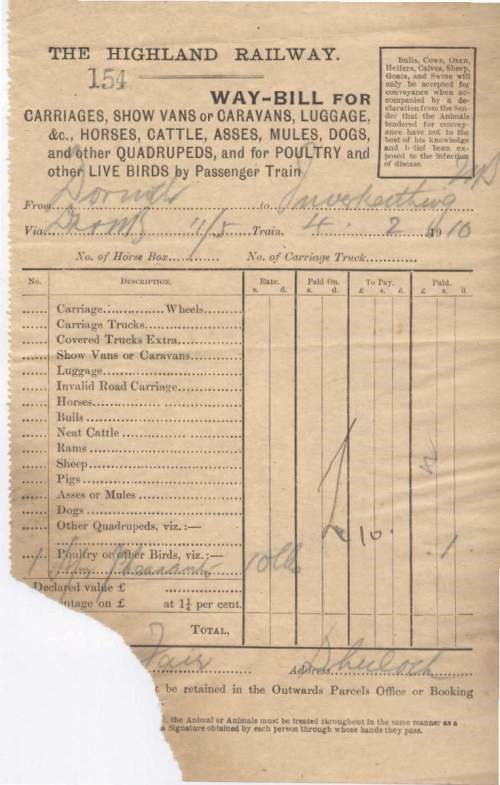 THE HIGHLAND RAILWAY.
154
Bulls, Cows, Oxen,
Heifers, Calves, Sheep,
Goats, and Swine will
only be accepted for
conveyance when ac-
companied by a de-
claration from the Sen-
der that the Animals
tendered for convey-
ance have not to the
best of his knowledge
and b-lief been ex-
posed to the infection
of disease.
WAY-BILL FOR
CARRIAGES, SHOW VANS or CARAVANS, LUGGAGE,
&c., HORSES, CATTLE, ASSES, MULES, DOGS,
and other QUADRUPEDS, and for POULTRY and
other LIVE BIRDS by Passenger Train
From Dornoch to Inverkeithing
Via 11/5 Train. 4 . 2 1910
No. of Horse Box............ No. of Carriage Truck............
No. DESCRIPTION. Rate. Paid On. To Pay. Paid.
s. d. s. d. £ s. d. £ s. d.
Carriage...............Wheels.........
Carriage Trucks
Covered Trucks Extra
Show Vans or Caravans
Luggage
Invalid Road Carriage
Horses
Bulls
Neat Cattle
Rams
Sheep
Pigs
Asses or Mules
Dogs
Other Quadrupeds, viz.:—
10.
Poultry or other Birds, viz.:— 1
1 Pheasants 10lb
Declared value £
ntage on £ at 1¼ per cent.
TOTAL,
Address
t be retained in the Outwards Parcels Office or Booking
l, the Animal or Animals must be treated throughout in the same manner as a
a Signature obtained by each person through whose hands they pass.